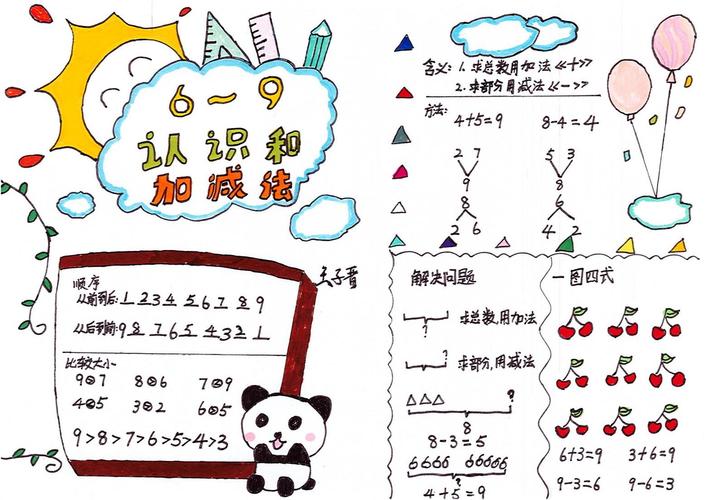 6—9
认识和
加减法
王子晋
顺序
从前到后:1 2 3 4 5 6 7 8 9
从后到前:9 8 7 6 5 4 3 2 1
比较大小
9 > 7 8 > 6 7 < 9
4 < 5 3 > 2 6 > 5
9>8>7>6>5>4>3
含义: 1. 求总数用加法《+》
2. 求部分用减法《-》
方法:
4+5=9 8-4=4
2 7 5 3
9 8
8 6
2 6 4 2
解决问题
? 求总数,用加法
? 求部分,用减法
?
8
8-3=5
6666 66666
?
4+5=9
一图四式
6+3=9 3+6=9
9-3=6 9-6=3